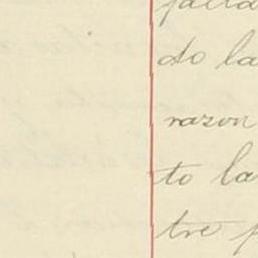 do la
razon
to la
tre p